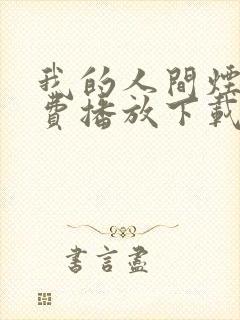 我的人間煙
費播放下載
書言盡